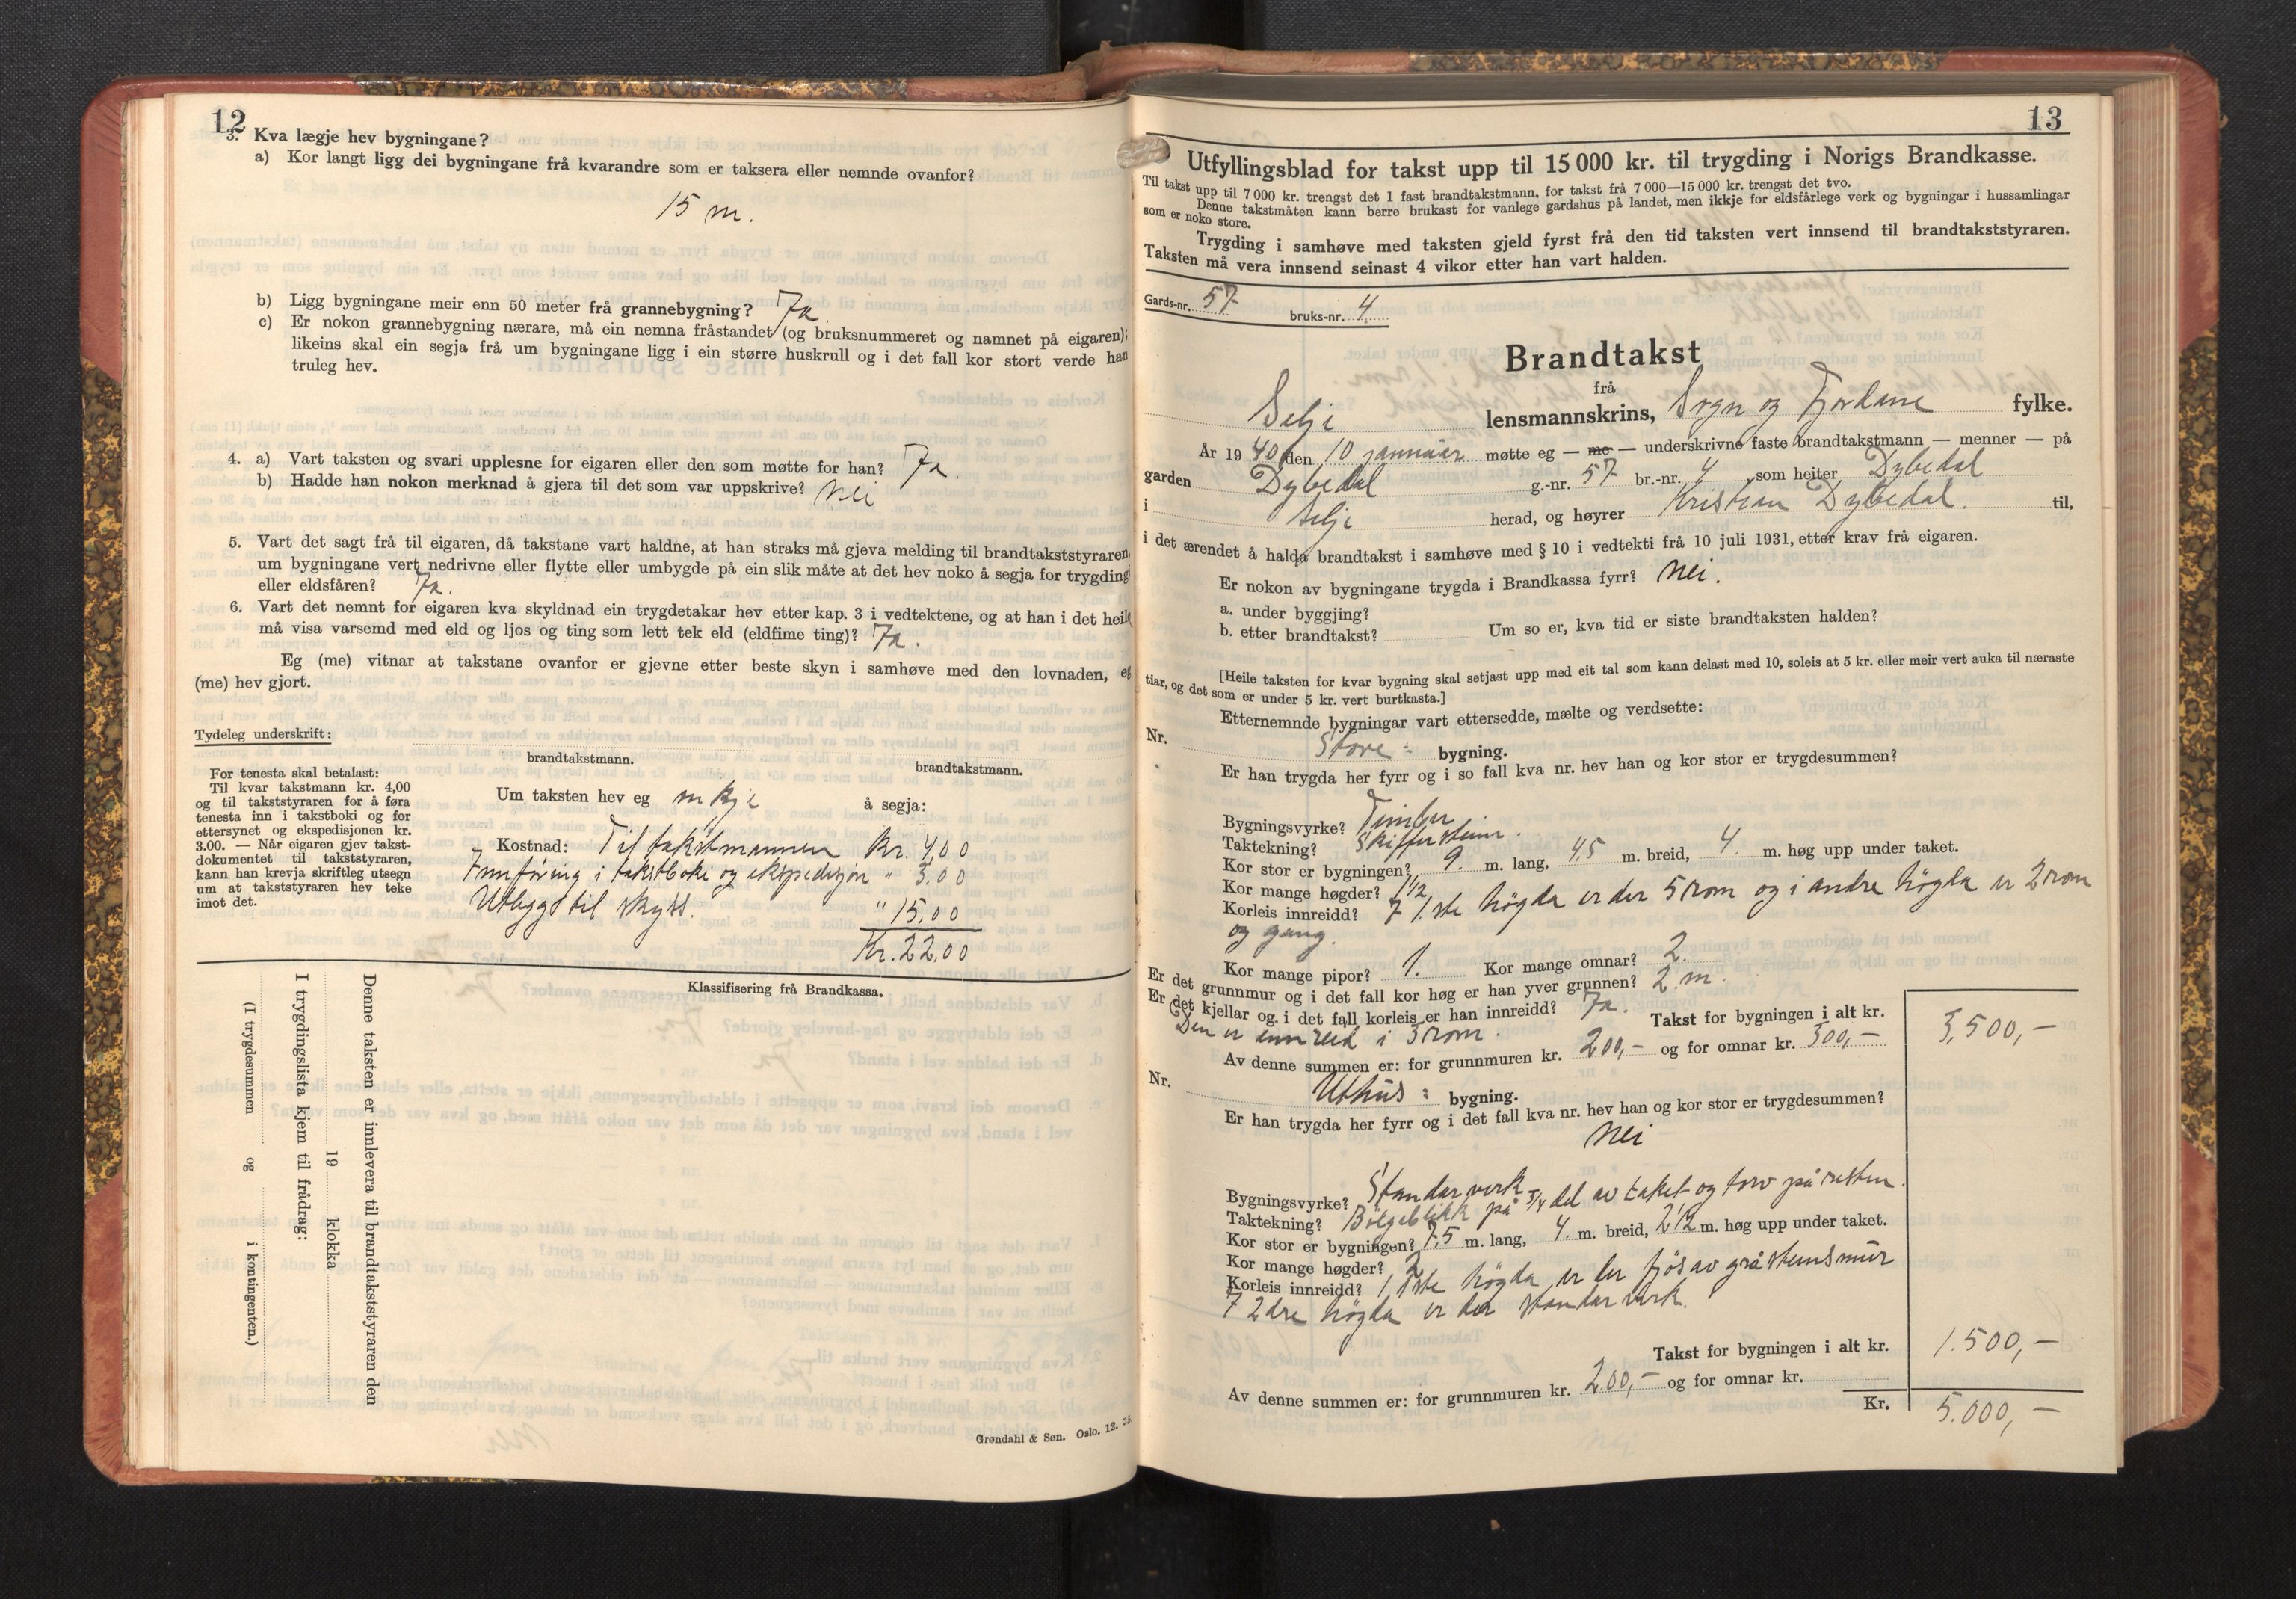 12
3. Kva lægje hev bygningane?
a) Kor langt ligg dei bygningane frå kvarandre som er taksera eller nemnde ovanfor?
15 m.
b) Ligg bygningane meir enn 50 meter frå grannebygning? Ja
c) Er nokon grannebygning nærare, må ein nemna fråstandet (og bruksnummeret og namnet på eigaren);
likeins skal ein segja frå um bygningane ligg i ein større huskrull og i det fall kor stort verde han
truleg hev.
4. a) Vart taksten og svari upplesne for eigaren eller den som møtte for han? Ja.
b) Hadde han nokon merknad å gjera til det som var uppskrive? Nei
5. Vart det sagt frå til eigaren, då takstane vart haldne, at han straks må gjeva melding til brandtakststyraren,
um bygningane vert nedrivne eller flytte eller umbygde på ein slik måte at det hev noko å segja for trygding
eller eldsfåren? Ja.
6. Vart det nemnt for eigaren kva skyldnad ein trygdetakar hev etter kap. 3 i vedtektene, og at han i det heile
må visa varsemd med eld og ljos og ting som lett tek eld (eldfime ting)? Ja.
Eg (me) vitnar at takstane ovanfor er gjevne etter beste skyn i samhøve med den lovnaden, eg
(me) hev gjort.
Tydeleg underskrift:
brandtakstmann.
brandtakstmann.
For tenesta skal betalast:
Til kvar takstmann kr. 4,00
og til takststyraren for å føra
tenesta inn i takstboki og for
ettersynet og ekspedisjonen kr.
3.00. — Når eigaren gjev takst-
dokumentet til takststyraren,
kann han krevja skriftleg utsegn
um at takststyraren hev teke
imot det.
Um taksten hev eg inkje å segja:
Kostnad: Til takstmannen Kr. 4,00
Innføring i takstboki og ekspedisjon " 3,00
Utlegg til skyss. " 15,00
Kr. 22,00
Klassifisering frå Brandkassa.
Denne taksten er innlevera til brandtakststyraren den
19 klokka
I trygdingslista kjem til frådrag:
(I trygdesummen og i kontingenten.)
Grøndahl & Søn. Oslo. 12. 35.
13
Utfyllingsblad for takst upp til 15 000 kr. til trygding i Norigs Brandkasse.
Til takst upp til 7 000 kr. trengst det 1 fast brandtakstmann, for takst frå 7 000—15 000 kr. trengst det tvo.
Denne takstmåten kann berre brukast for vanlege gardshus på landet, men ikkje for eldsfårlege verk og bygningar i hussamlingar
som er noko store.
Trygding i samhøve med taksten gjeld fyrst frå den tid taksten vert innsend til brandtakststyraren.
Taksten må vera innsend seinast 4 vikor etter han vart halden.
Gards-nr. 57 bruks-nr. 4.
Brandtakst
frå
Selje lensmannskrins, Sogn og Fjordane fylke.
År 1940 den 10 januar møtte eg — me — underskrivne faste brandtakstmann — menner — på
garden Dybedal g.-nr. 57 br.-nr. 4 som heiter Dybedal
i Selje herad, og høyrer Kristian Dybedal. til,
i det ærendet å halda brandtakst i samhøve med § 10 i vedtekti frå 10 juli 1931, etter krav frå eigaren.
Er nokon av bygningane trygda i Brandkassa fyrr? Nei.
a. under byggjing?
b. etter brandtakst? Um so er, kva tid er siste brandtaksten halden?
[Heile taksten for kvar bygning skal setjast upp med eit tal som kann delast med 10, soleis at 5 kr. eller meir vert auka til næraste
tiar, og det som er under 5 kr. vert burtkasta.]
Etternemnde bygningar vart ettersedde, mælte og verdsette:
Nr. Stove- bygning.
Er han trygda her fyrr og i so fall kva nr. hev han og kor stor er trygdesummen?
Bygningsvyrke? Timber
Taktekning? Skifferstein.
Kor stor er bygningen? 9. m. lang, 4,5 m. breid, 4. m. høg upp under taket.
Kor mange høgder? 1 1/2
Korleis innreidd? I 1.ste høgda er der 5 rom og i andre høgda er 2 rom
og gang.
Kor mange pipor? 1. Kor mange omnar? 2.
Er det grunnmur og i det fall kor høg er han yver grunnen? 2 m.
Er det kjellar og i det fall korleis er han innreidd? Ja.
Den er innreid i 3 rom. Takst for bygningen i alt kr. 3,500,—
Av denne summen er: for grunnmuren kr. 200,— og for omnar kr. 300,—
Nr. Uthus- bygning.
Er han trygda her fyrr og i det fall kva nr. hev han og kor stor er trygdesummen?
Nei
Bygningsvyrke? Standarverk
Taktekning? Bølgeblikk på 3/4 del av taket og torv på resten.
Kor stor er bygningen? 7,5 m. lang, 4. m. breid, 2 1/2 m. høg upp under taket.
Kor mange høgder? 2
Korleis innreidd? I 1ste høgda er der fjøs av gråsteinsmur
I 2dre høgda er der standarverk.
Takst for bygningen i alt kr. 1.500,—
Av denne summen er: for grunnmuren kr. 200,— og for omnar kr.
Kr. 5.000,—